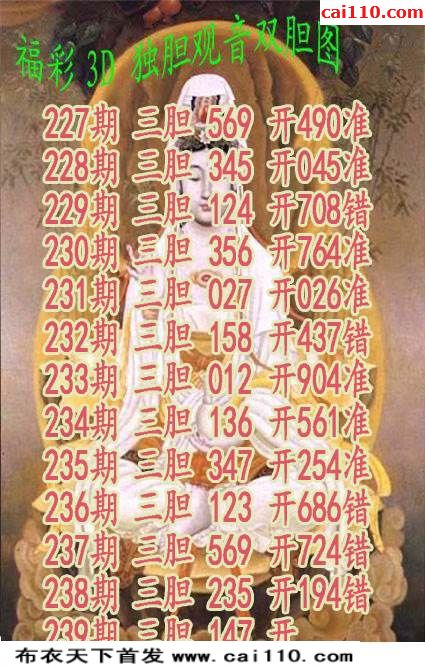 cai110.com
福彩3D 独胆观音双胆图
227期 三胆 569 开490准
228期 三胆 345 开045准
229期 三胆 124 开708错
230期 三胆 356 开764准
231期 三胆 027 开026准
232期 三胆 158 开437错
233期 三胆 012 开904准
234期 三胆 136 开561准
235期 三胆 347 开254准
236期 三胆 123 开686错
237期 三胆 569 开724错
238期 三胆 235 开194错
239期 三胆 147 开
布衣天下首发 www.cai110.com